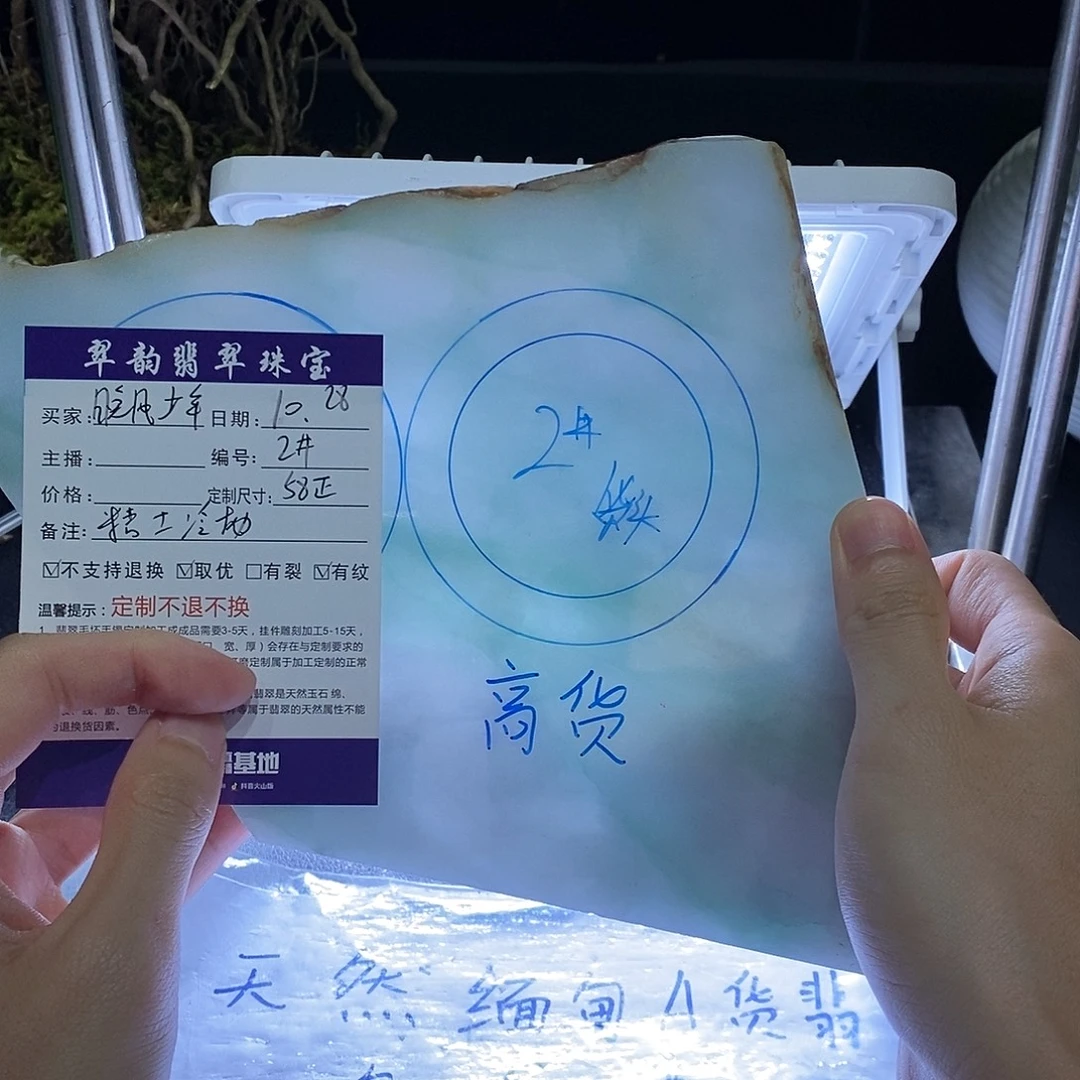 翠韵翡翠珠宝
买家:晓风少年 日期: 10.28
主播: 编号: 2#
价格: 定制尺寸: 58正
备注:
☑不支持退换 ☑取优 □有裂 ☑有纹
温馨提示:定制不退不换
1、翡翠毛坯手镯定制加工成成品需要3-5天,挂件雕刻加工5-15天,
宽、厚)会存在与定制要求的
定制属于加工定制的正常
翡翠是天然玉石 绵、
线、筋、色点
等属于翡翠的天然属性不能
退换货因素。
基地
抖音火山版
2#
高货
天然缅甸A货翡